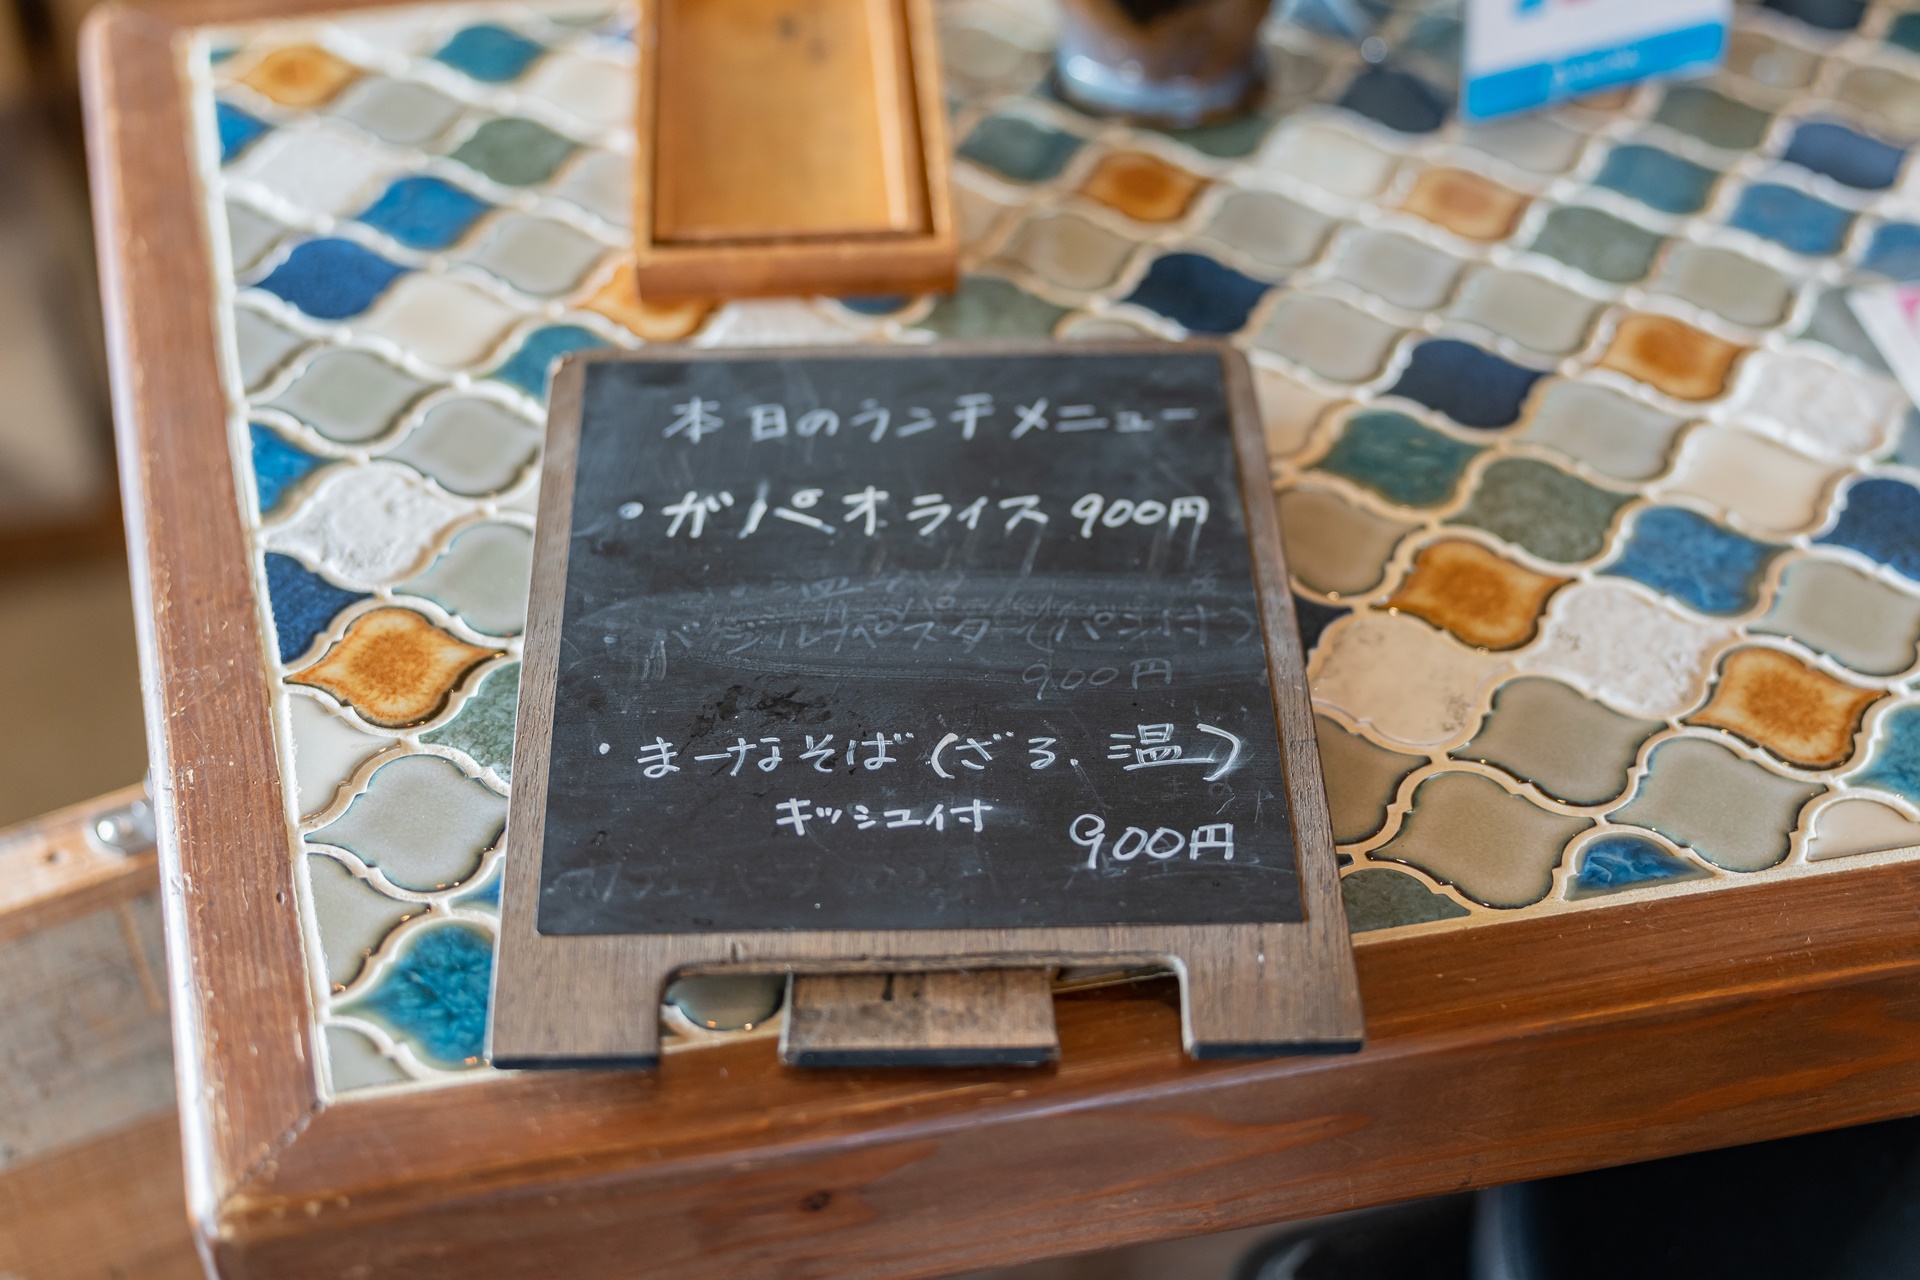 本日のランチメニュー
・ガパオライス 900円
900円
・まーなそば(ざる、温)
キッシュ付
900円